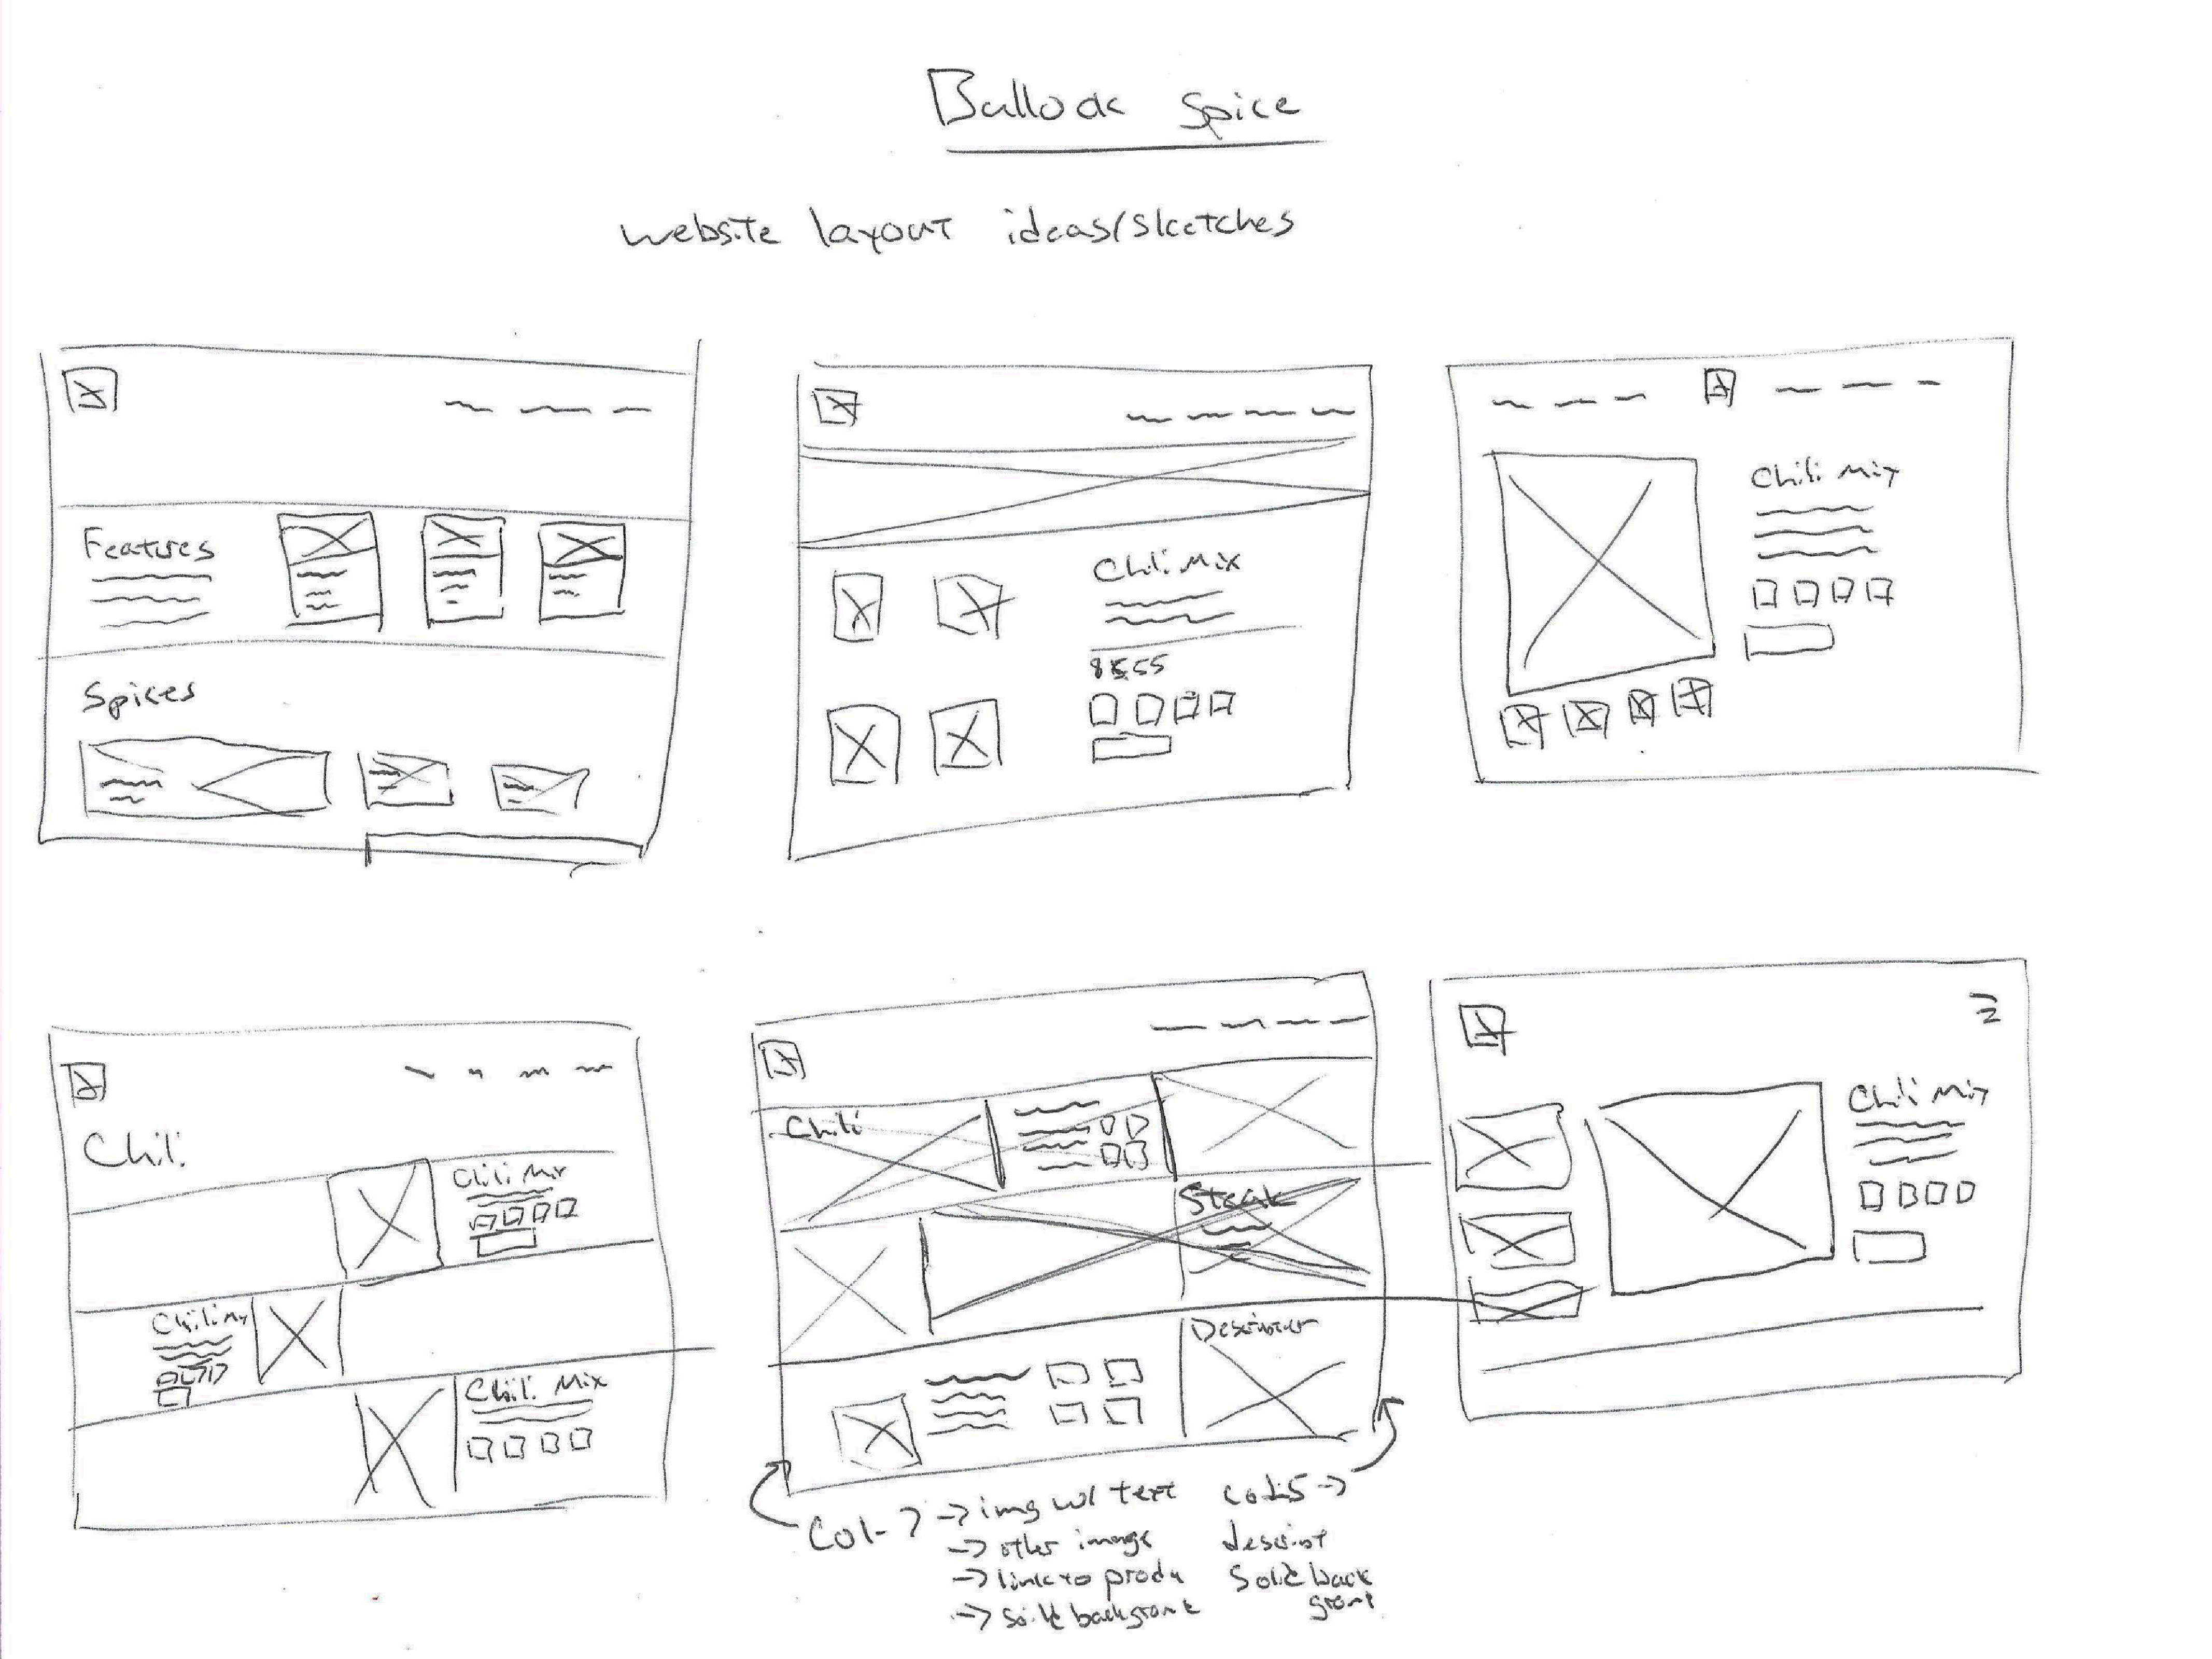 Bullock Spice
website layout ideas/sketches
Features
Spices
Chili Mix
Chili Mix
Chili
Chili Mix
Chili Mix
Chili
Steak
Chili Mix
Col-
-> img w/ text
-> other image
-> link to produ
-> solid background
descript
Solid back
ground